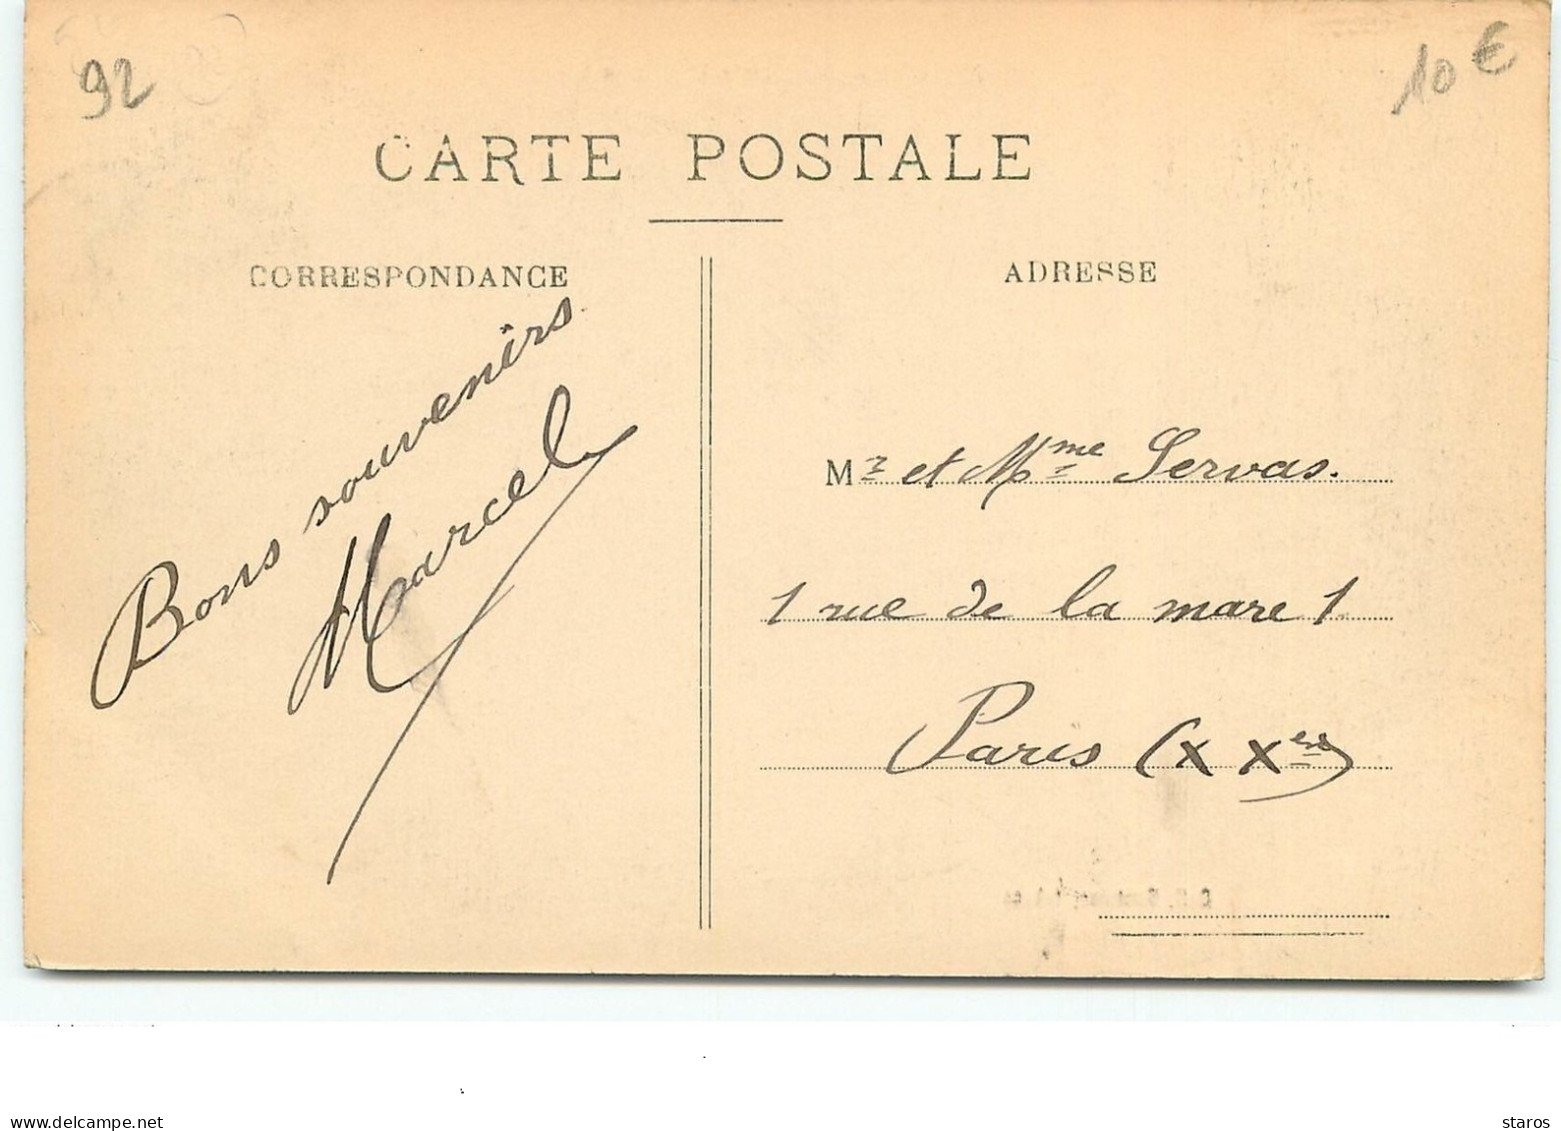 92
10 €
CARTE POSTALE
CORRESPONDANCE
Bons souvenirs
Marcel
ADRESSE
Mr et Mme Servas.
1 rue de la mare 1
Paris (XXème)
www.delcampe.net
staros